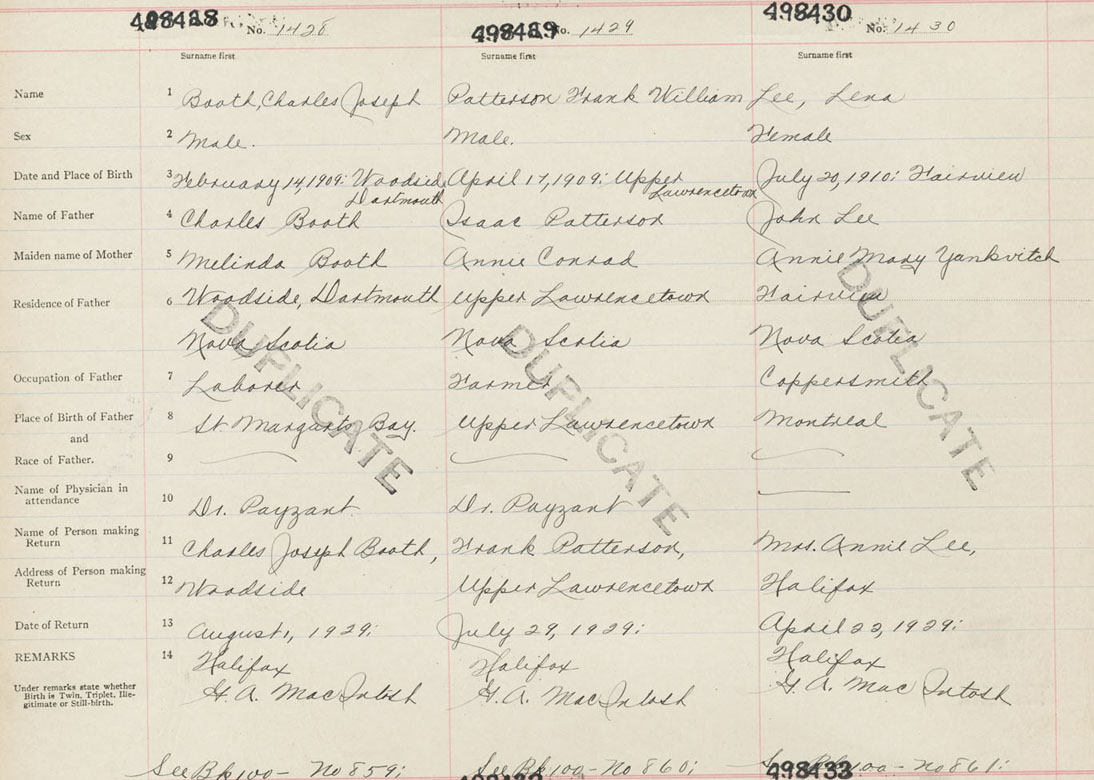 498428 498429 498430
No. 1428 No. 1429 No. 1430
Surname first Surname first Surname first
Name 1 Booth, Charles Joseph Patterson Frank William Lee, Lena
Sex 2 Male. Male. Female
Date and Place of Birth 3 February 14, 1909: Woodside April 17, 1909: Upper July 20, 1910: Fairview
Dartmouth Lawrencetown
Name of Father 4 Charles Booth Isaac Patterson John Lee
Maiden name of Mother 5 Melinda Booth Annie Conrad Annie Mary Yankvitch
Residence of Father 6 Woodside, Dartmouth Upper Lawrencetown Fairview
Nova Scotia Nova Scotia Nova Scotia
Occupation of Father 7 Laborer Farmer Coppersmith
Place of Birth of Father 8 St. Margarets Bay. Upper Lawrencetown Montreal
and
Race of Father. 9
Name of Physician in
attendance 10 Dr. Payzant. Dr. Payzant
Name of Person making
Return 11 Charles Joseph Booth, Frank Patterson, Mrs. Annie Lee,
Address of Person making
Return 12 Woodside Upper Lawrencetown Halifax
Date of Return 13 August 1, 1929: July 29, 1929: April 22, 1929:
REMARKS 14 Halifax Halifax Halifax
Under remarks state whether
Birth is Twin, Triplet, Ille-
gitimate or Still-birth.
H. A. MacIntosh H. A. MacIntosh H. A. MacIntosh
DUPLICATE DUPLICATE DUPLICATE
See Bk 100 - No 859: See Bk 100 - No 860: See Bk 100 - No 861:
498433